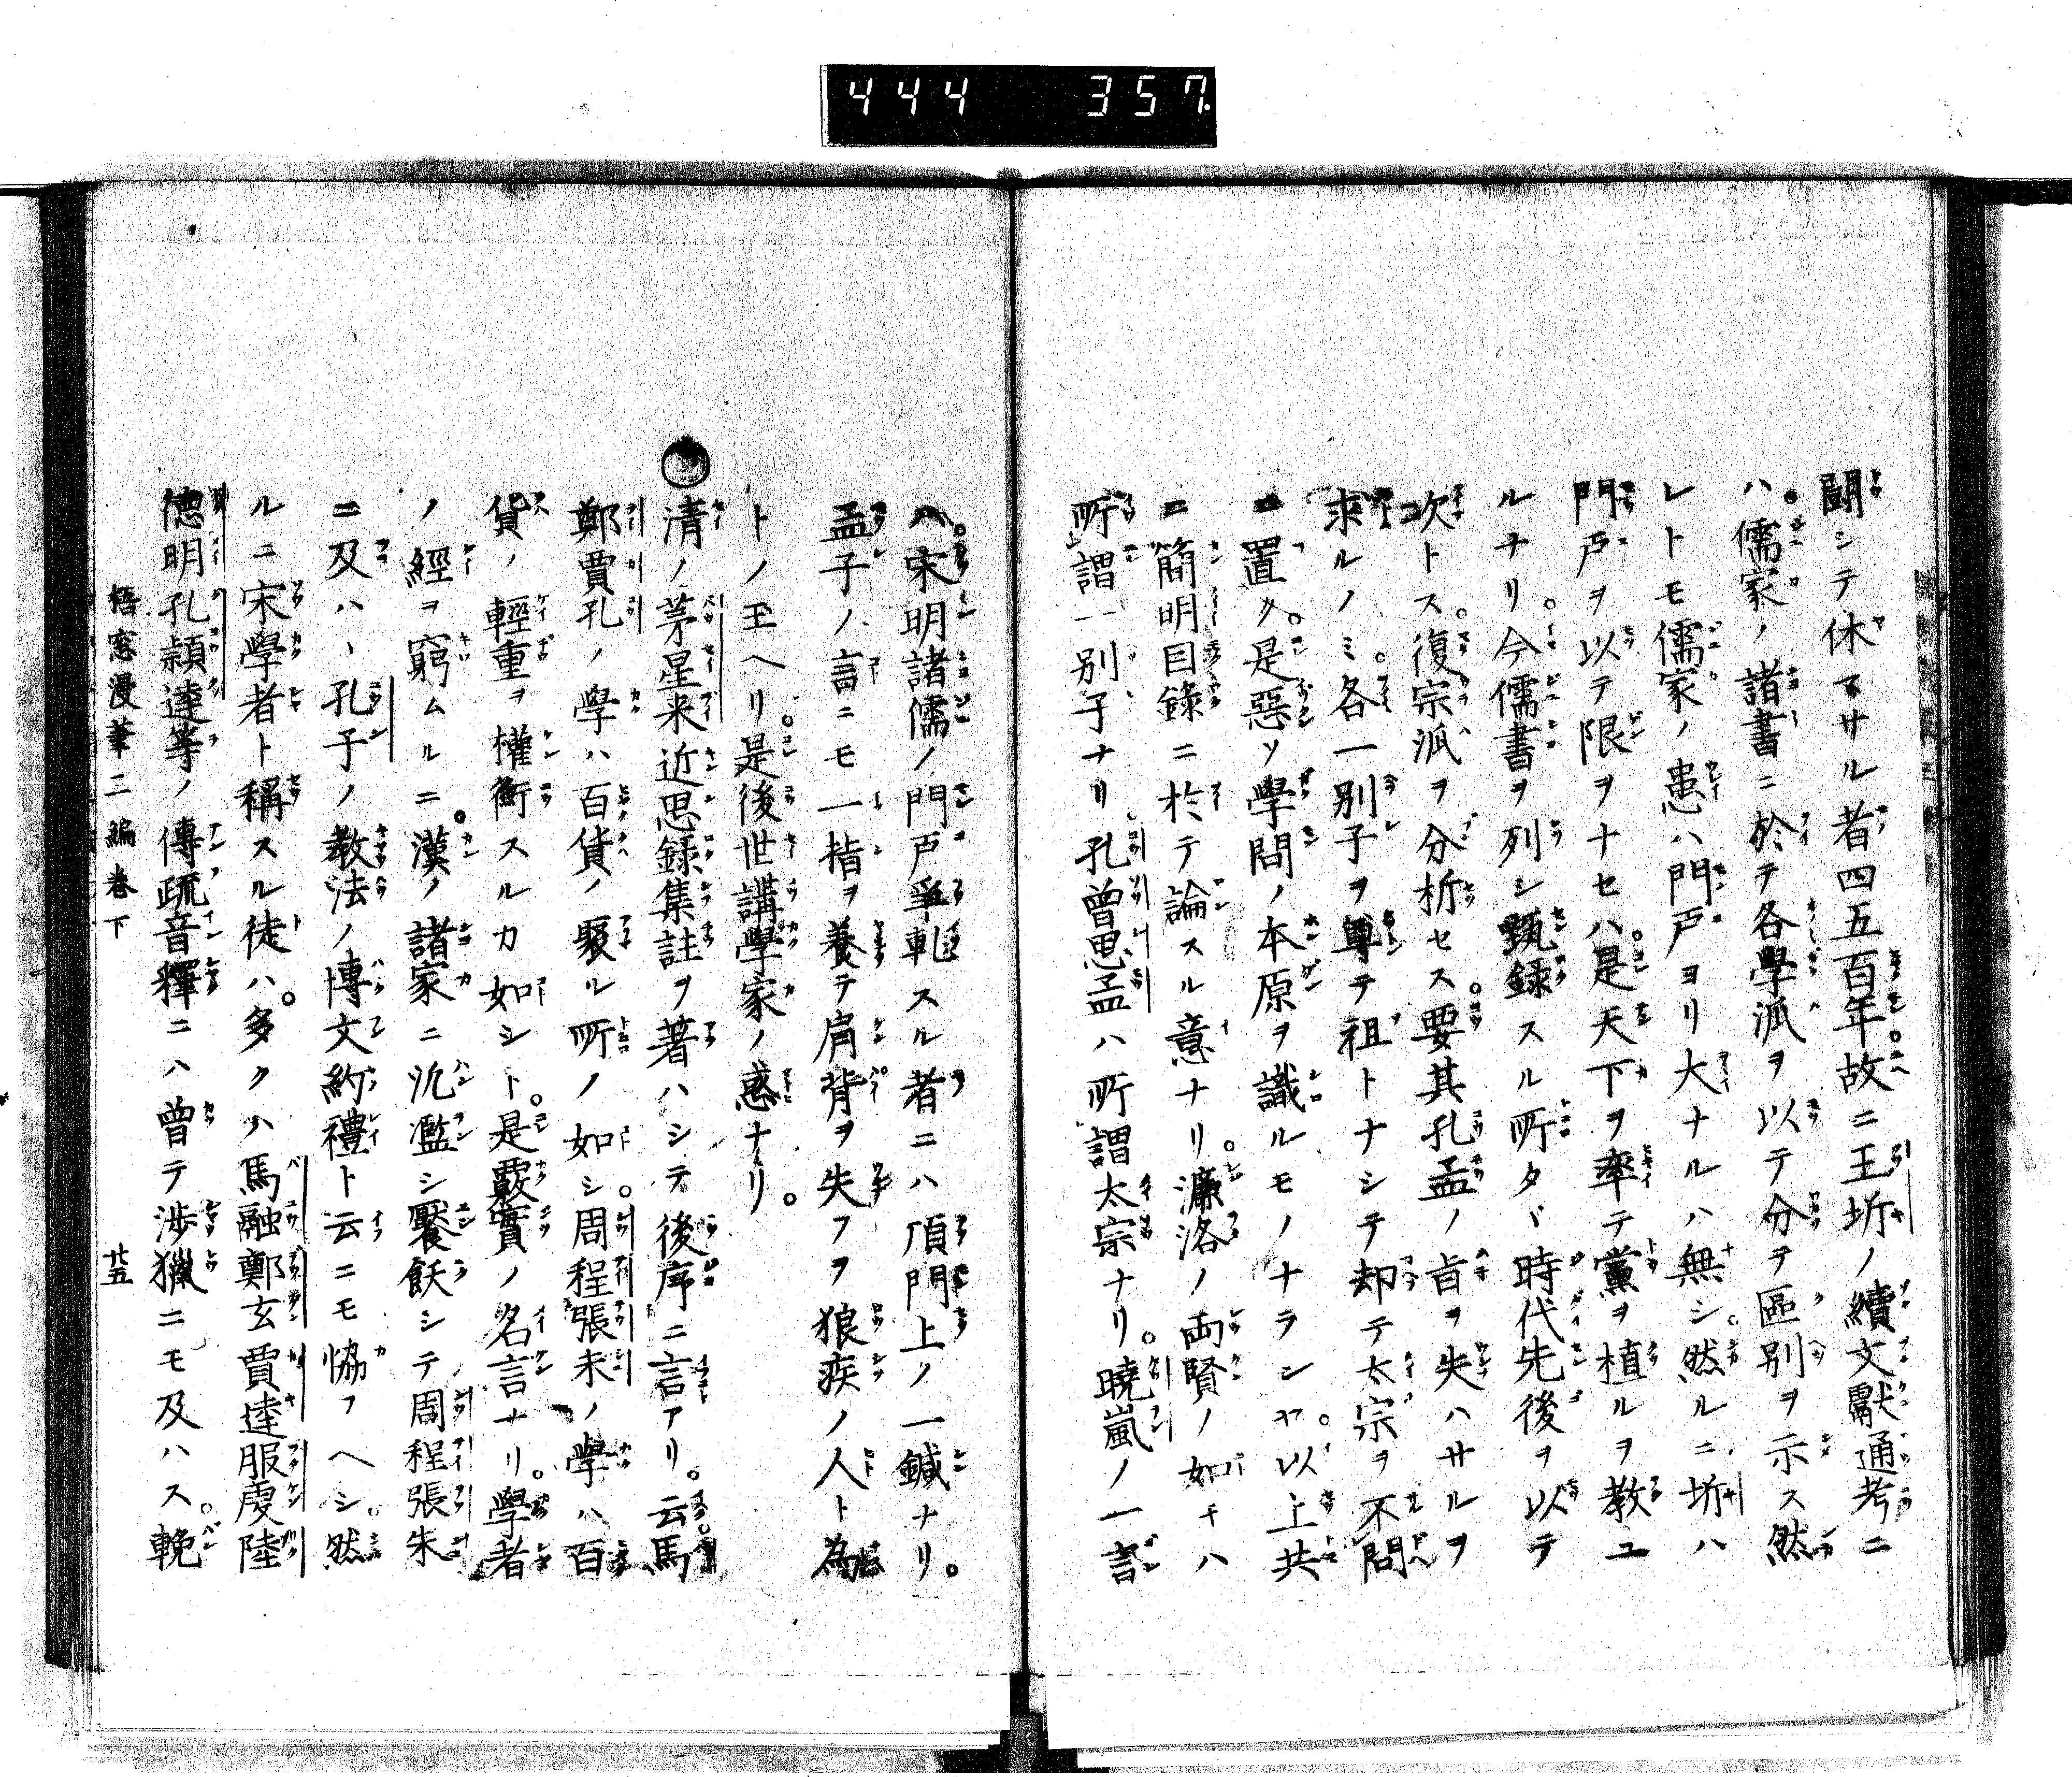 444 357.
闘シテ休マサル者四五百年。故ニ王圻ノ續文獻通考ニ
ハ。儒家ノ諸書ニ於テ各學派ヲ以テ分ヲ區別ヲ示ス然
レトモ儒家ノ患ハ門戸ヨリ大ナルハ無シ。然ルニ圻ハ
門戸ヲ以テ限ヲナセハ。是天下ヲ率テ黨ヲ植ルヲ教ユ
ルナリ。今儒書ヲ列シ甄録スル所タヾ時代先後ヲ以テ
次トス。復宗派ヲ分析セス。要其孔孟ノ旨ヲ失ハサルヲ
求ルノミ。各一別子ヲ尊テ祖トナシテ却テ太宗ヲ不問
ニ置ク。是惡ソ學問ノ本原ヲ識ルモノナラシヤ。以上共
ニ簡明目錄ニ於テ論スル意ナリ。濂洛ノ両賢ノ如キハ
所謂一別子ナリ。孔曽思孟ハ所謂太宗ナリ。曉嵐ノ一言
ハ。宋明諸儒ノ門戸爭軋スル者ニハ頂門上ノ一鍼ナリ。
孟子ノ言ニモ一指ヲ養テ肩背ヲ失フヲ狼疾ノ人ト為
トノ玉ヘリ。是後世講學家ノ惑ナリ。
清ノ茅星来近思録集註ヲ著ハシテ後序ニ言アリ。云馬
鄭賈孔ノ學ハ百貨ノ聚ル所ノ如シ。周程張朱ノ學ハ百
貨ノ輕重ヲ權衡スルカ如シト。是覈實ノ名言ナリ。學者
ノ經ヲ窮ムルニ。漢ノ諸家ニ氾濫シ饜飫シテ周程張朱
ニ及ハヽ孔子ノ教法ノ博文約禮ト云ニモ恊フヘシ。然
ルニ宋學者ト稱スル徒ハ。多クハ馬融鄭玄賈逵服虔陸
德明孔頴逹等ノ傳疏音釋ニハ曽テ渉獵ニモ及ハス。輓
梧窓漫筆三編巻下 廿五